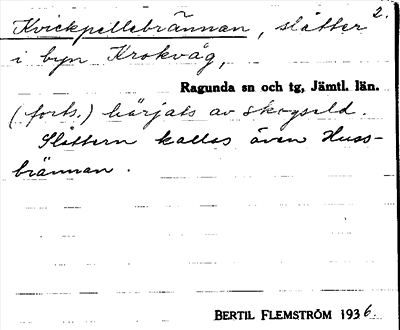 2.
Kvickpellebrännan, slåtter
i byn Krokvåg,
Ragunda sn och tg, Jämtl. län.
(forts.) härjats av skogseld.
Slåttern kallas även Huss-
brännan.
BERTIL FLEMSTRÖM 1936.